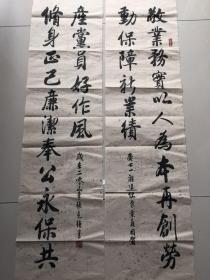 敬業務實以人為本再創勞
動保障新業績
脩身正己廉潔奉公永保共
產黨員好作風